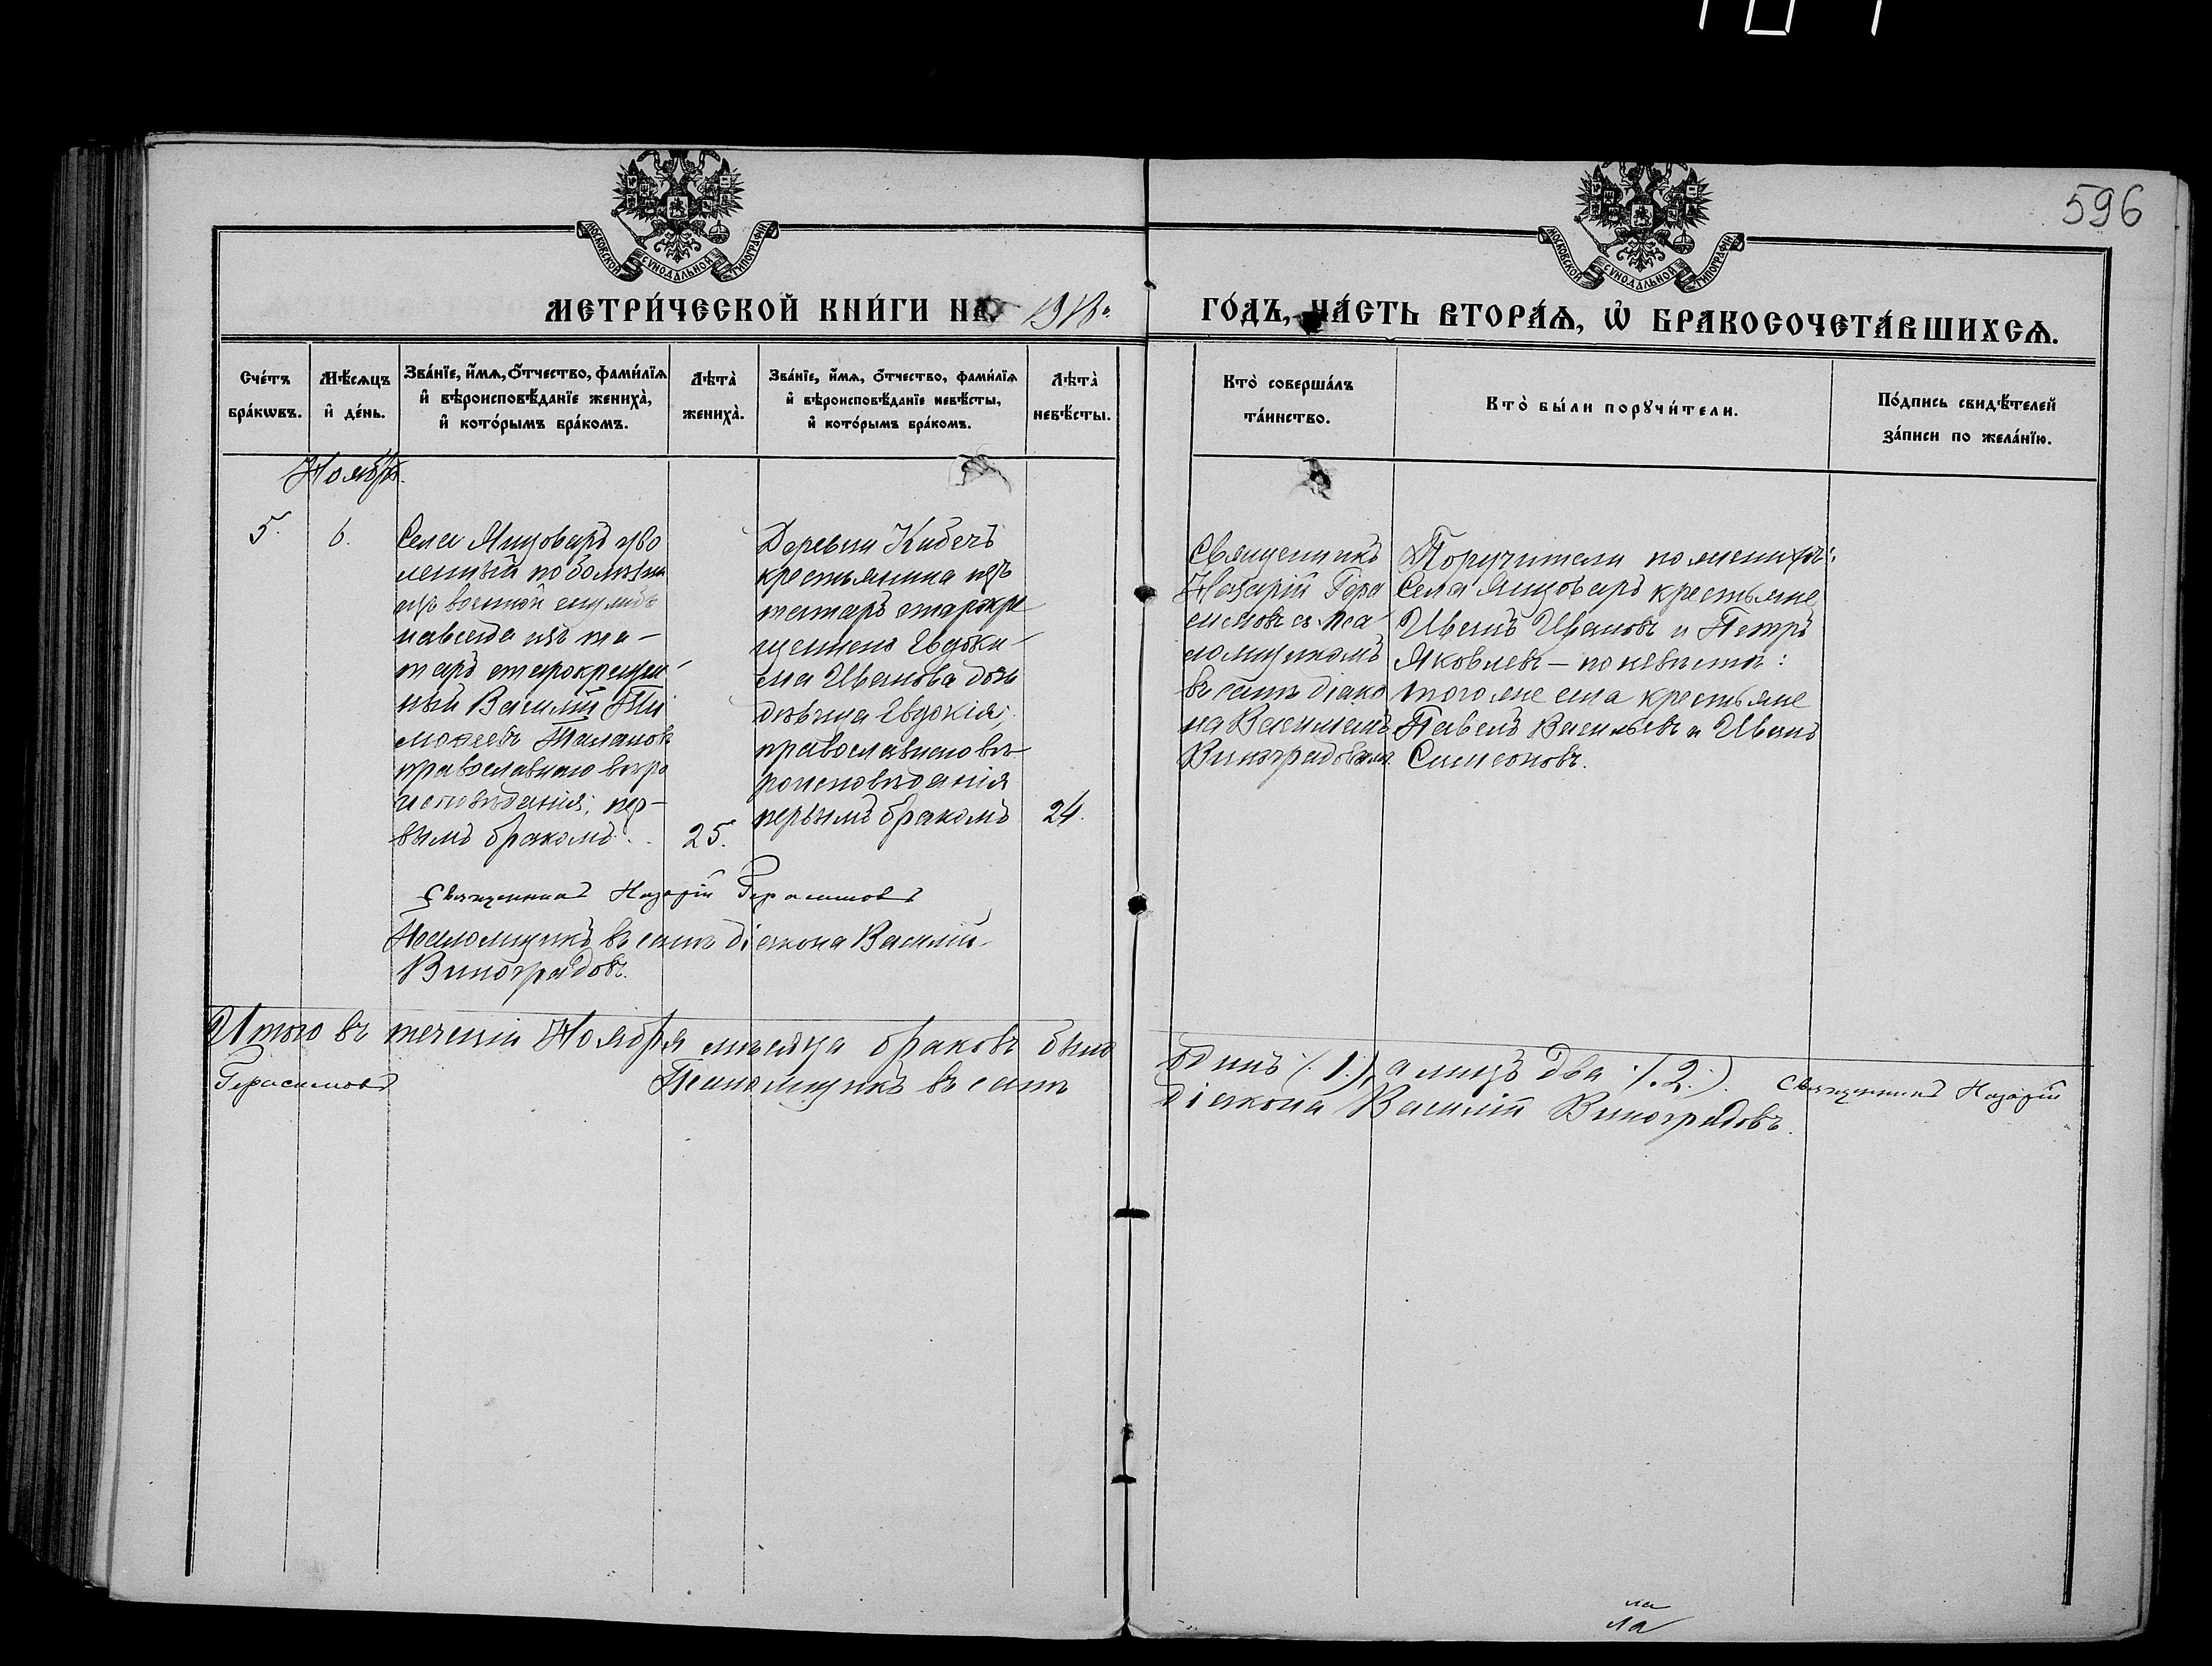 596
МОСКОВСКОЙ СѴНОДАЛЬНОЙ ТИПОГРАФІИ
МОСКОВСКОЙ СѴНОДАЛЬНОЙ ТИПОГРАФІИ
МЕТРИ́ЧЕСКОЙ КНИ́ГИ НА
ГО́ДЪ, ЧА́СТЬ ВТОРА́Ѧ, Ѽ БРАКОСОЧЕТА́ВШИХСѦ.
Сче́тъ
бра́кѡвъ.
Мѣ́сѧцъ
и҆ де́нь.
Зва́нїе, и҆́мѧ, ѻ҆́тчество, фами́лїѧ
и҆ вѣроисповѣ́данїе жениха̀,
и҆ кото́рымъ бра́комъ.
Лѣта̀
жениха̀.
Зва́нїе, и҆́мѧ, ѻ҆́тчество, фами́лїѧ
и҆ вѣроисповѣ́данїе невѣ́сты,
и҆ кото́рымъ бра́комъ.
Лѣта̀
невѣ́сты.
Кто̀ соверша́лъ
та́инство.
Кто̀ бы́ли порꙋчи́тели.
По́дпись свидѣ́телей
за́писи по жела́нїю.
Ноябрь.
5.
6.
Села Янцоваръ уво
ленный по болѣзни
изъ военной службы
навсегда изъ та-
таръ старокреще-
ный Василій Ти
моѳеевъ Талановъ
православнаго вѣро
исповѣданія; пер-
вымъ бракомъ.
25.
Деревни Кибечъ
крестьянина изъ
татаръ старокре
щенно Евдоки-
ма Иванова дочь
дѣвица Евдокія;
православнаго вѣ-
роисповѣданія
первымъ бракомъ
24.
Священникъ
Назарій Гера
симовъ съ пса-
ломщикомъ
въ санѣ діако
на Василіемъ
Виноградовымъ
Поручители по женихѣ:
Села Янцоваръ крестьяне
Иванъ Ивановъ и Петръ
Яковлевъ – по невѣстѣ:
того же села крестьяне
Павелъ Васильевъ и Иванъ
Симеоновъ.
Священникъ Назарій Герасимовъ
Псаломщикъ въ санѣ діакона Василій
Виноградовъ.
Итого въ теченіи Ноября мѣсяца браковъ было
одинъ (1.), а лицъ два (.2.). Священникъ Назарій
Герасимовъ Псаломщикъ въ санѣ
діакона Василій Виноградовъ.
ла
ла